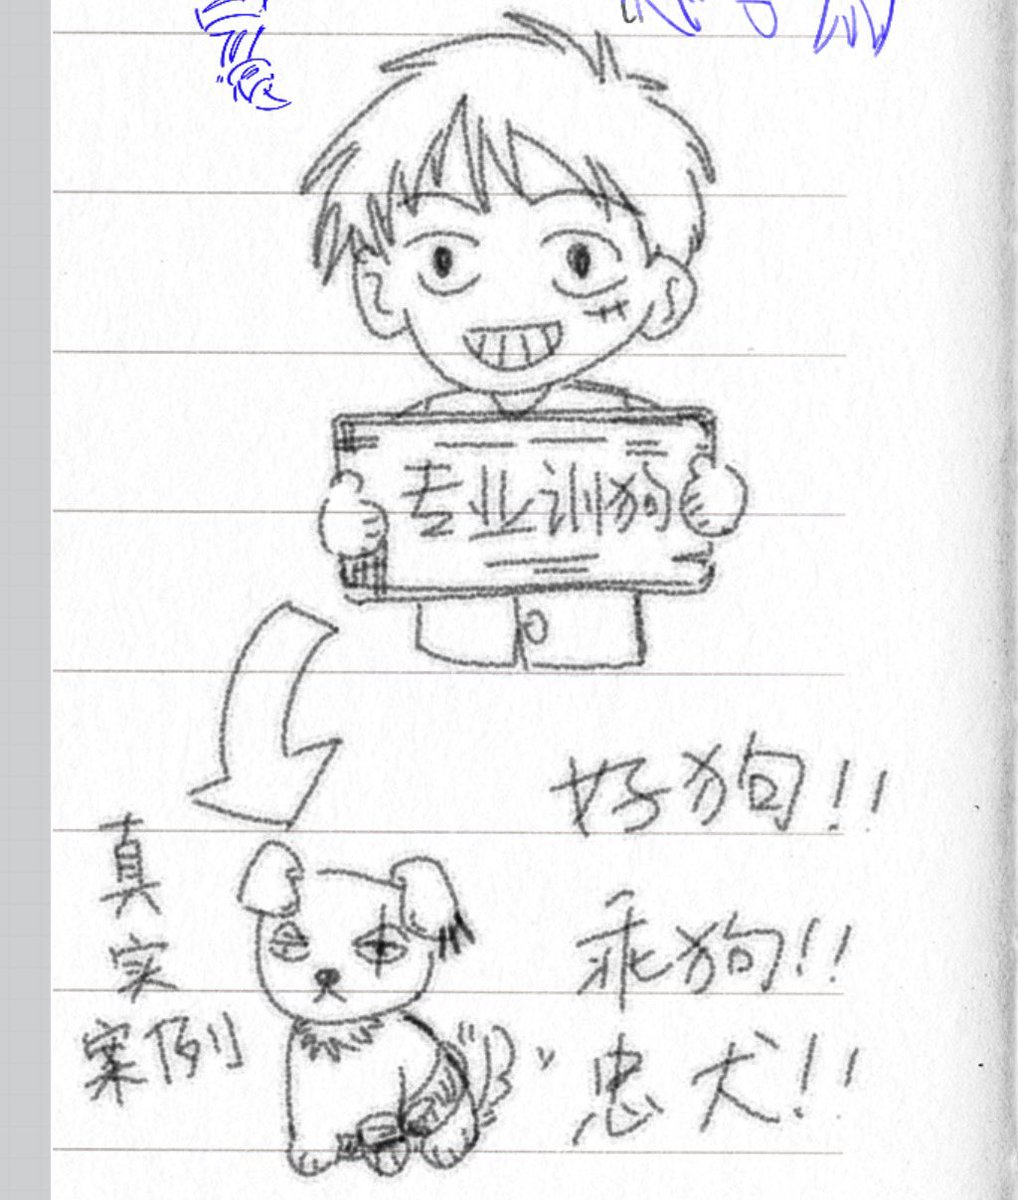 专业训狗
好狗!!
真实案例
乖狗!!
忠犬!!